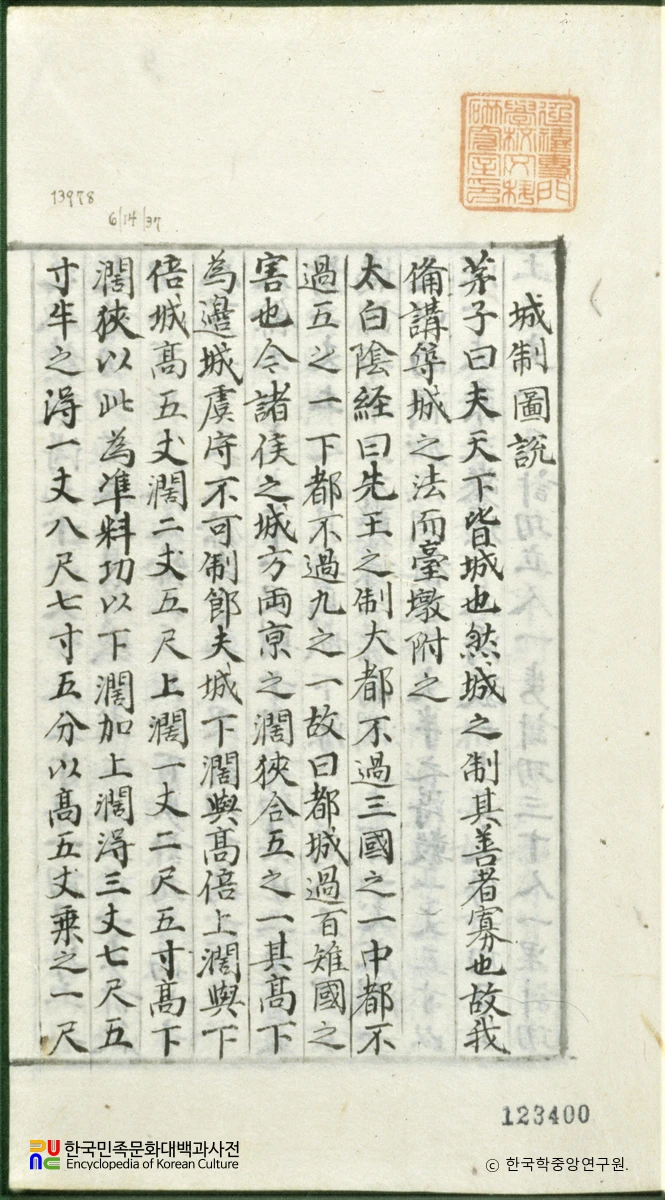 13978
6/14/37
城制圖説
茅子曰夫天下皆城也然城之制其善者寡也故我
俻講筭城之法而臺墩附之
太白陰経曰先王之制大都不過三國之一中都不
過五之一下都不過九之一故曰都城過百雉國之
害也今諸侯之城方両京之濶狹合五之一其髙下
為邉城虞府不可制節夫城下濶與髙倍上濶與下
倍城髙五丈濶二丈五尺上濶一丈二尺五寸髙下
濶狹以此為凖料功以下濶加上濶得三丈七尺五
寸半之得一丈八尺七寸五分以髙五丈乗之一尺
123400
한국민족문화대백과사전
Encyclopedia of Korean Culture
ⓒ 한국학중앙연구원.